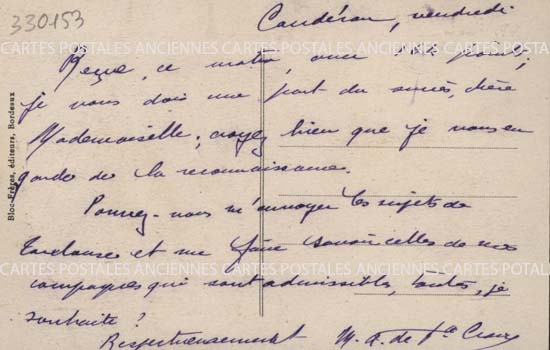 330153
Caudéran, vendredi
CARTES POSTALES ANCIENNES CARTES POSTALES ANCIENNES CARTES POSTALES
Reçue, ce matin, avec points,
je vous dois une part du succès, chère
Mademoiselle ; croyez bien que je vous en
garde de la reconnaissance.
Pouvez-vous m'envoyer les sujets de
Toulouse et me faire savoir celles de mes
CARTES POSTALES ANCIENNES CARTES POSTALES ANCIENNES CARTES POSTALES
compagnes qui sont admissibles, toutes, je
souhaite ?
Respectueusement M. de Ste Croix
Bloc Frères, éditeurs, Bordeaux